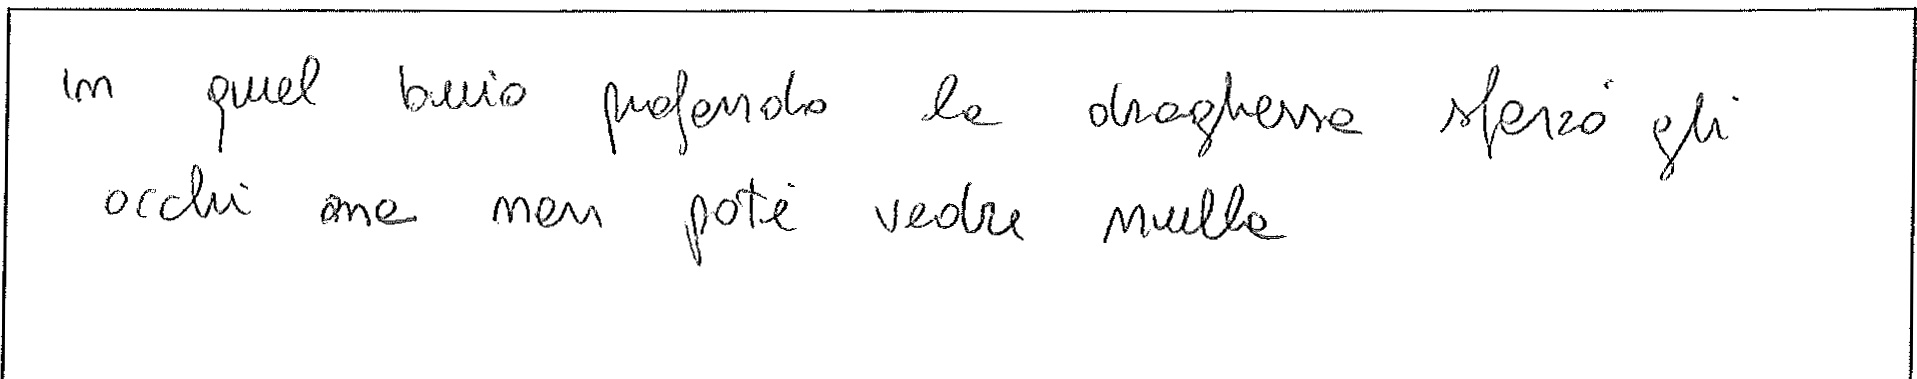 in quel buio profondo la draghessa sforzò gli
occhi ma non poté vedre nulla